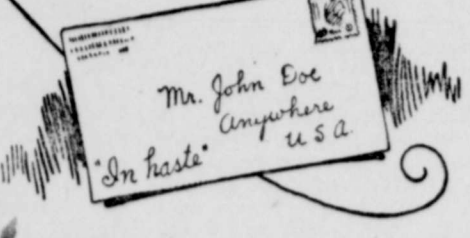 Mr. John Doe
Anywhere
U S A.
"In haste"